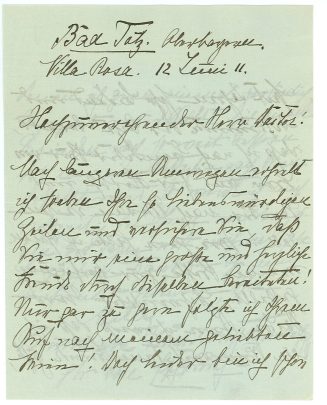 Bad Tölz. Oberbayern.
Villa Rosa. 12 Juni 11.
Hochzuverehrender Herr Doktor!
Nach längerem erhielt
ich soeben Ihre so liebenswürdigen
Zeilen und versichere Sie, daß
Sie mir eine große und herzliche
Freude durch dieselben bereiteten!
Nur gar zu gern folgte ich Ihrem
Ruf nach meinem geliebten
Wien! Doch leider bin ich schon